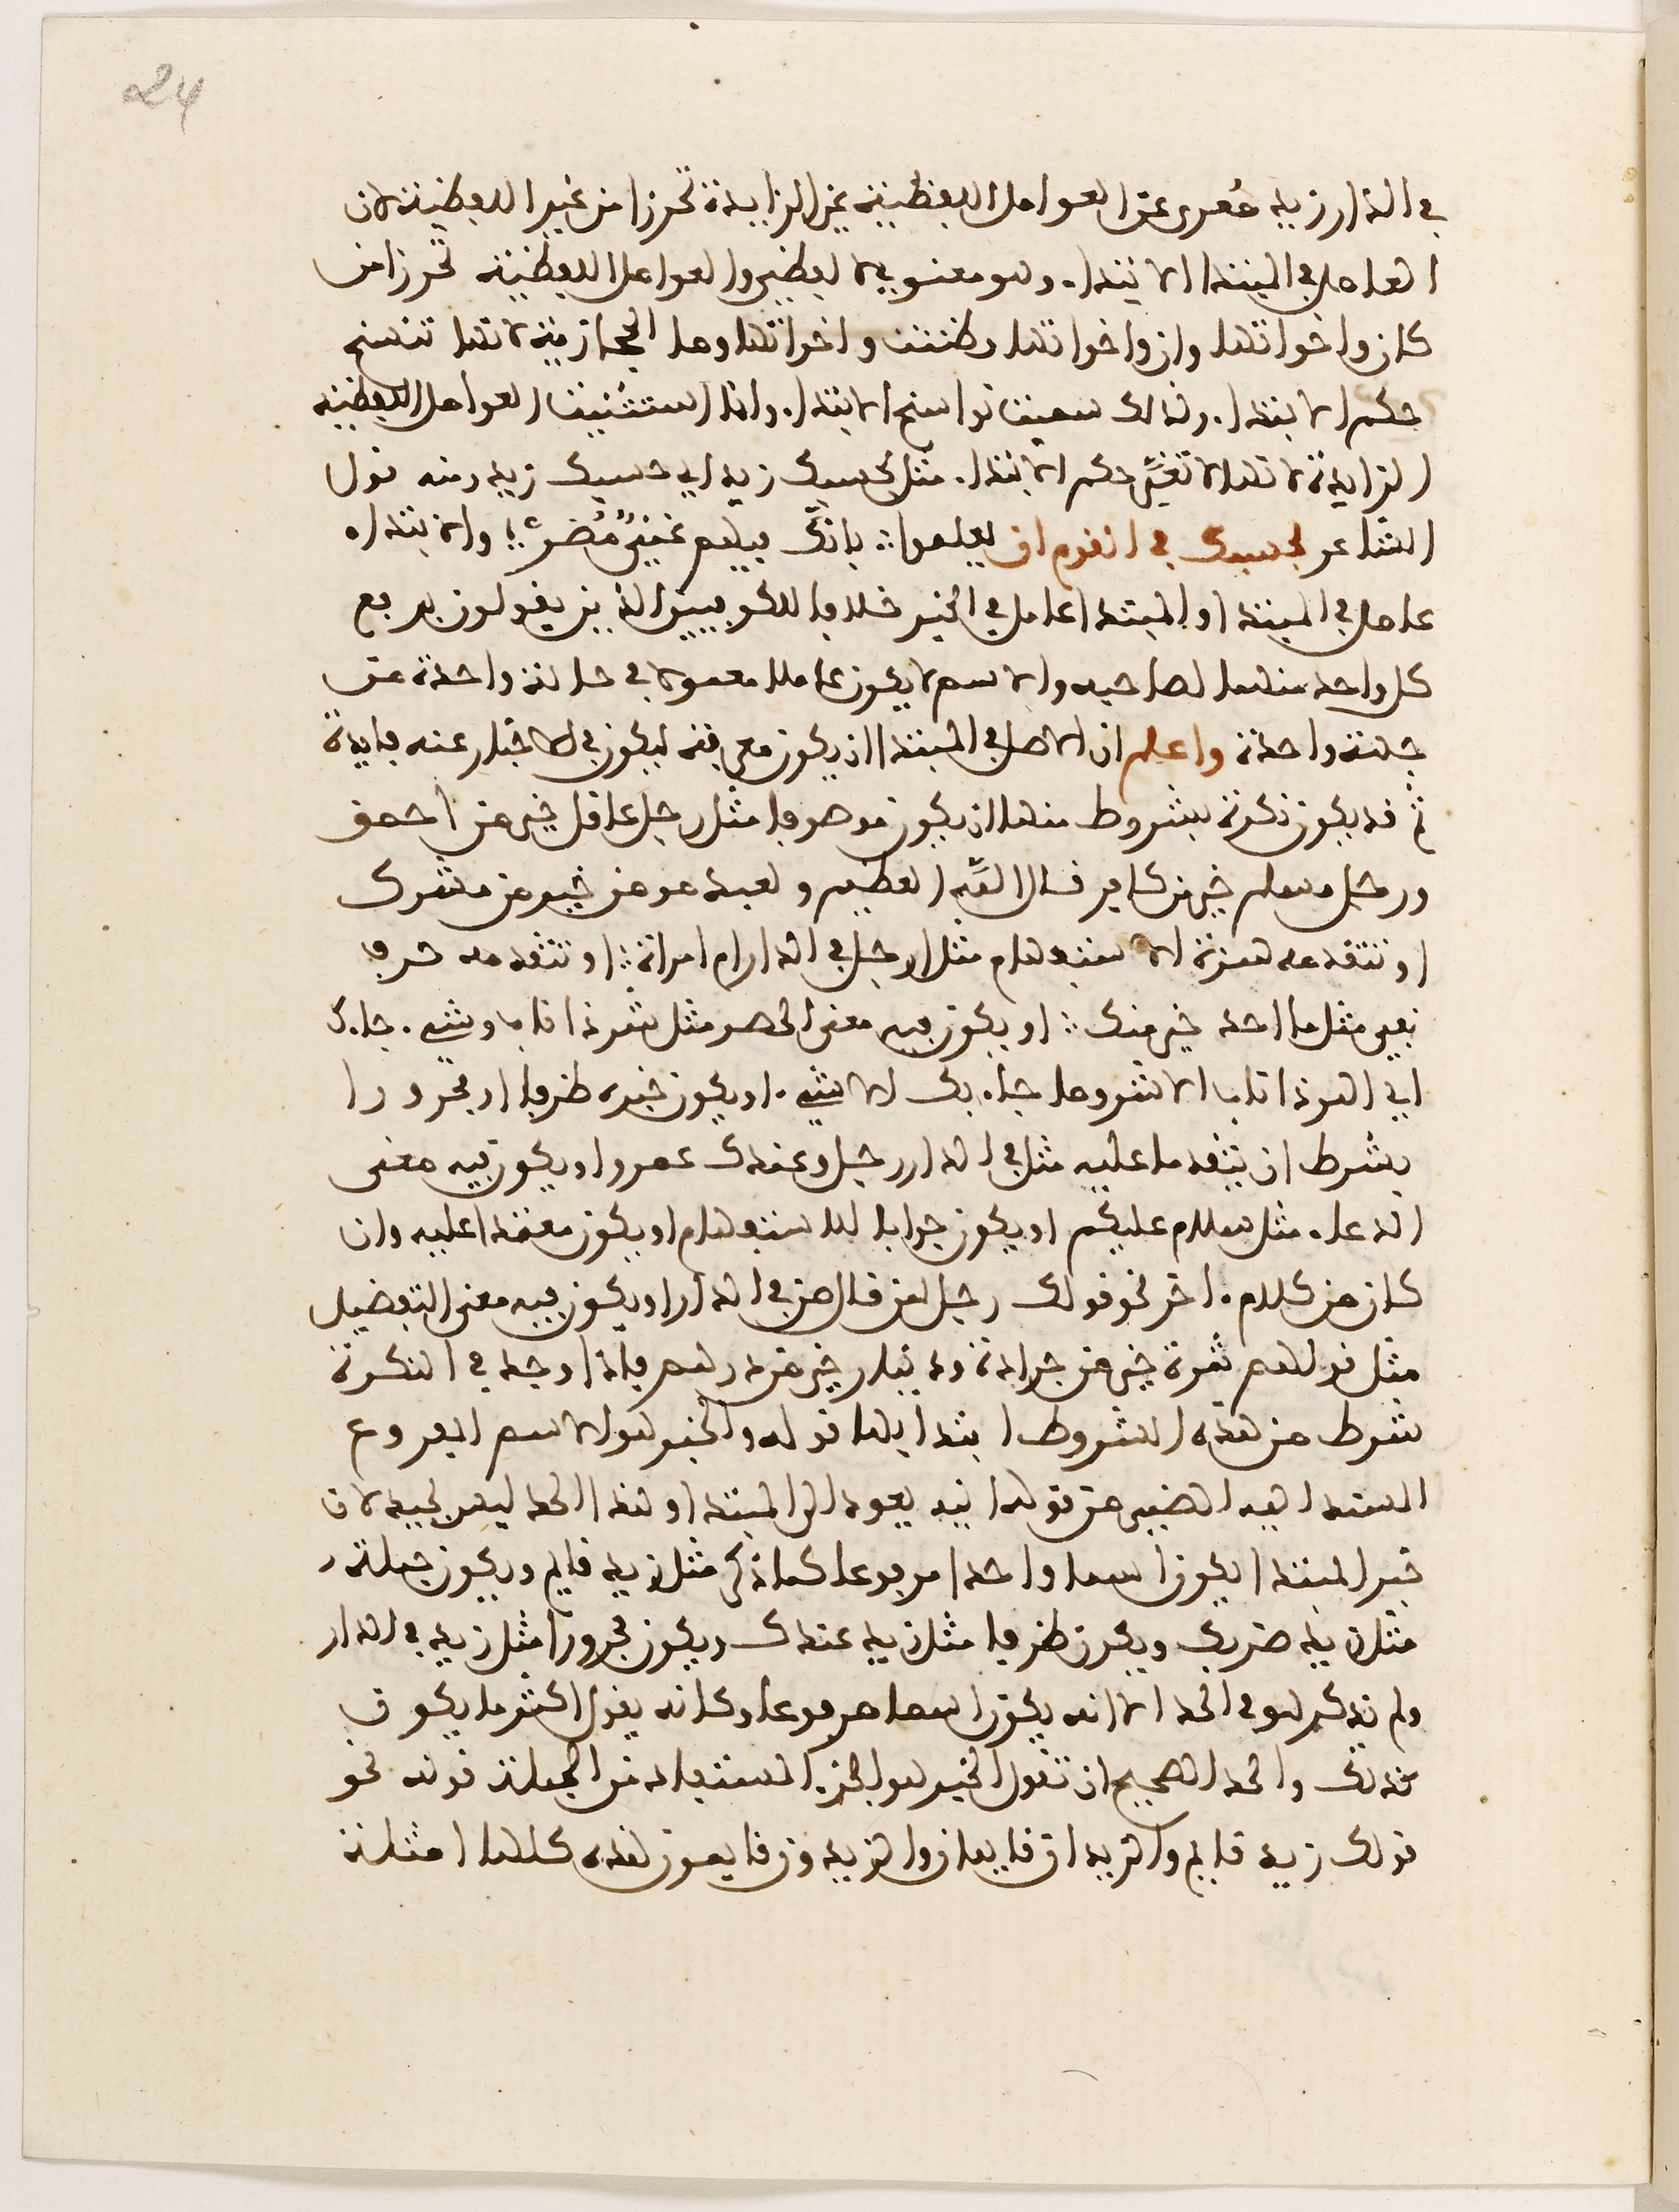 24
في الدار زيد معرى عن العوامل اللفظية غير الزايدة تحرزا من غير اللفظية لان
العامل في المبتدا الابتدا. وهو معنوي لا لفظي والعوامل اللفظية تحرزا من
كان واخواتها وان واخواتها وظننت واخواتها وما الحجازية لانها تنسخ
حكم الابتدا. ولذلك سميت نواسخ الابتدا. وانما استثنيت العوامل اللفظية
الزايدة لانها لا تغير حكم الابتدا. مثل بحسبك زيد اي حسبك زيد ومنه قول
الشاعر بحسبك في القوم ان يعلموا ∴ بانك فيهم غني مضر ∴ والابتداء
عامل في المبتدا والمبتدا عامل في الخبر خلافا للكوفيين الذين يقولون يرفع
كل واحد منهما لصاحبه والاسم لا يكون عاملا معمولا في حالة واحدة من
جهة واحدة واعلم ان الاصل في المبتدا ان يكون معرفة ليكون في الاخبار عنه فايدة
ثم قد يكون نكرة بشروط منها ان يكون موصوفا مثل رجل عاقل خير من احمق
ورجل مسلم خير من كافر قال الله العظيم ولعبد مومن خير من مشرك
او تتقدمه همزة الاستفهام مثل ارجل في الدار ام امراة ∴ او تتقدمه حرف
نفي مثل ما احد خير منك ∴ او يكون فيه معنى الحصر مثل شر اهر ذا ناب وشيء. جاء بك
اي ما اهر ذا ناب الا شر وما جاء بك الا شيء. او يكون خبره ظرفا او مجرورا
بشرط ان يتقدما عليه مثل في الدار رجل وعندك عمرو او يكون فيه معنى
الدعاء. مثل سلام عليكم او يكون جوابا للاستفهام او يكون معتمدا عليه وان
كان من كلام. اخر نحو قولك رجل لمن قال من في الدار او يكون فيه معنى التفضيل
مثل قولهم تمرة خير من جرادة ودينار خير من درهم فاذا وجد في النكرة
شرط من هذه الشروط ابتدا بها قوله والخبر هو الاسم المرفوع
المسند اليه الضمير من قوله اليه يعود الى المبتدا وهذا الحد ليس بجيد لان
خبر المبتدا يكون اسما واحدا مرفوعا كما ذكر مثل زيد قايم ويكون جملة
مثل زيد ضربك ويكون ظرفا مثل زيد عندك ويكون مجرورا مثل زيد في الدار
ولم يذكر هو في الحد الا انه يكون اسما مرفوعا وكانه يقول اكثر ما يكون
كذلك والحد الصحيح ان تقول الخبر هو الجزء المستفاد من الجملة قوله نحو
قولك زيد قايم والزيدان قايمان والزيدون قايمون هذه كلها امثلة